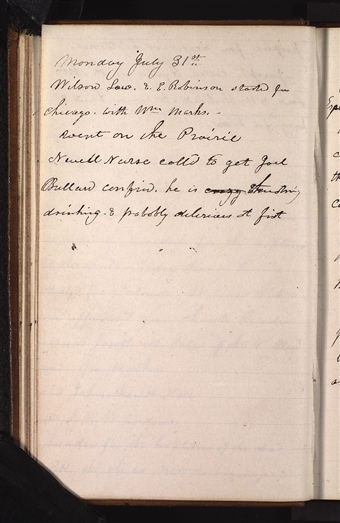 Monday July 31st
Wilson Law. & E. Robinson started for
Chicago. with Wm Marks. -
Went on the Prairie
Newell Nurse calld to get Joel
Bullard confind. he is crazy
drinking. & probobly delirious at first